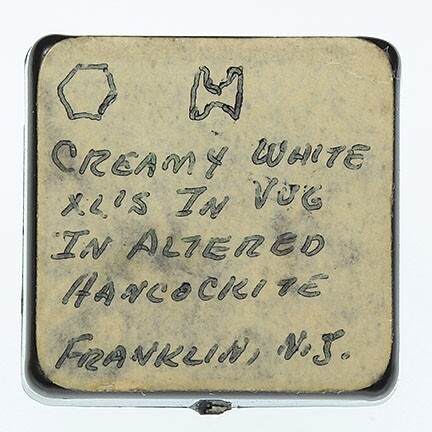 CREAMY WHITE
XL'S IN VUG
IN ALTERED
HANCOCKITE
FRANKLIN, N.J.